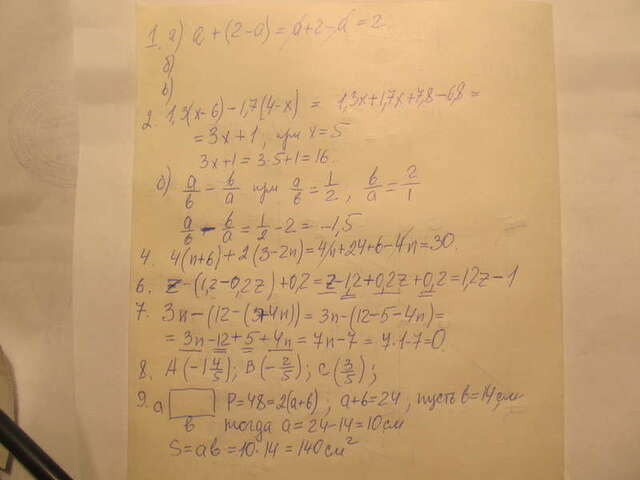 1. а) a + (2-a) = a+2-a = 2.
б)
в)
2. 1,3(x-6) - 1,7(4-x) = 1,3x+1,7x+7,8-6,8 =
= 3x+1, при x=5
3x+1 = 3·5+1 = 16.
б) a/b - b/a при a/b = 1/2, b/a = 2/1
a/b - b/a = 1/2 - 2 = -1,5
4. 4(n+6) + 2(3-2n) = 4n+24+6-4n = 30.
6. z-(1,2-0,2z)+0,2 = z-1,2+0,2z+0,2 = 1,2z-1
7. 3n-(12-(5+4n)) = 3n-(12-5-4n) =
= 3n-12+5+4n = 7n-7 = 7·1-7=0.
8. A(-1 4/5); B(-2/5); C(3/5);
9. a P=48=2(a+b), a+b=24, пусть b=14 см
b тогда a=24-14=10 см
S=ab=10·14=140 см²